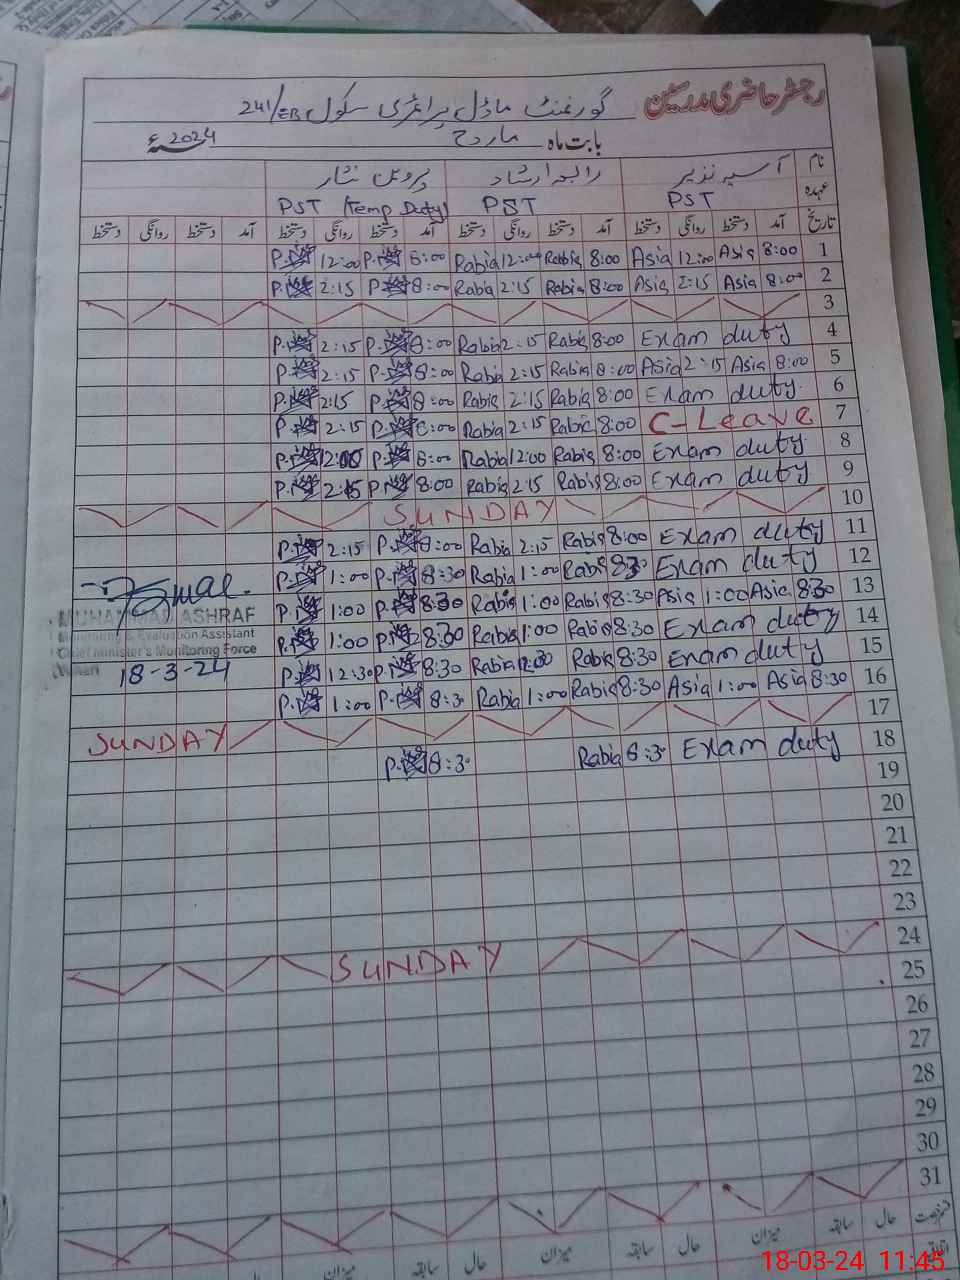 رجسٹر حاضری مدرسین
گورنمنٹ ماڈل پرائمری سکول 241/EB
بابت ماہ مارچ 2024ء
نام آسیہ نذیر رابعہ ارشاد پروین نثار
عہدہ PST PST PST (Temp Duty)
تاریخ آمد دستخط روانگی دستخط آمد دستخط روانگی دستخط آمد دستخط روانگی دستخط آمد دستخط روانگی دستخط
1 8:00 Asia 12:00 Asia 8:00 Rabia 12:00 Rabia 8:00 12:00
2 8:00 Asia 2:15 Asia 8:00 Rabia 2:15 Rabia 8:00 2:15
3
4 Exam duty 8:00 Rabia 2:15 Rabia 8:00 2:15
5 8:00 Asia 2:15 Asia 8:00 Rabia 2:15 Rabia 8:00 2:15
6 Exam duty 8:00 Rabia 2:15 Rabia 8:00 2:15
7 C-Leave 8:00 Rabia 2:15 Rabia 8:00 2:15
8 Exam duty 8:00 Rabia 12:00 Rabia 8:00 12:00
9 Exam duty 8:00 Rabia 2:15 Rabia 8:00 2:15
10 SUNDAY
11 Exam duty 8:00 Rabia 2:15 Rabia 8:00 2:15
12 Exam duty 8:30 Rabia 1:00 Rabia 8:30 1:00
13 8:30 Asia 1:00 Asia 8:30 Rabia 1:00 Rabia 8:30 1:00
14 Exam duty 8:30 Rabia 1:00 Rabia 8:30 1:00
15 Exam duty 8:30 Rabia 12:30 Rabia 8:30 12:30
16 8:30 Asia 1:00 Asia 8:30 Rabia 1:00 Rabia 8:30 1:00
17 SUNDAY
18 Exam duty 8:30 Rabia 8:30
19
20
21
22
23
24 SUNDAY
25
26
27
28
29
30
31
MUHAMMAD ASHRAF
Monitoring & Evaluation Assistant
Chief Minister's Monitoring Force
18-3-24
حال سابقہ میزان حال سابقہ میزان حال سابقہ میزان
18-03-24 11:45